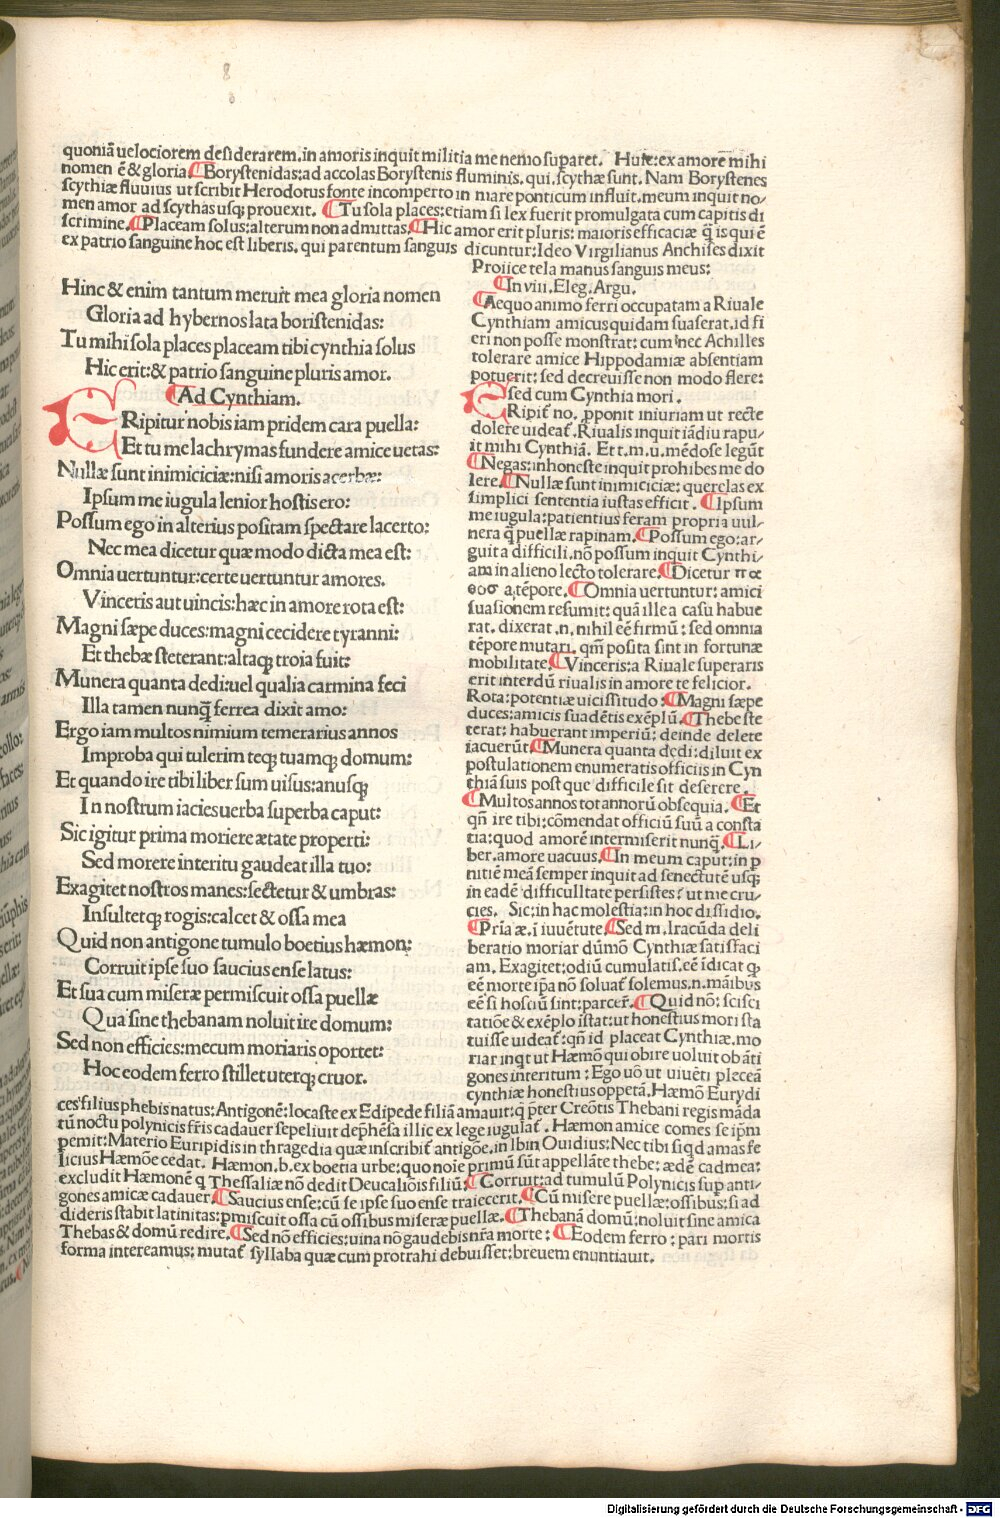 quoniā uelociorem desiderarem.in amoris inquit militia me nemo suparet. Huic:ex amorem mihi
nomen ē & gloria. ¶Borystenidas:ad accolas Borystenis fluminis, qui.scythæ sunt. Nam Borystenes
scythiæ fluuius ut scribit Herodotus fonte incomperto in mare ponticum influit.meum inquit no/
men amor ad scythas usq; prouexit. ¶Tu sola places:etiam si lex fuerit promulgata cum capitis di
scrimine.¶Placeam solus:alterum non admittas.¶Hic amor erit pluris: maioris efficaciæ q̄ is qui ē
ex patrio sanguine hoc est liberis, qui parentum sanguis dicuntur:Ideo Virgilianus Anchises dixit
Hinc & enim tantum meruit mea gloria nomen
Gloria ad hybernos lata boristenidas:
Tu mihi sola places placeam tibi cynthia solus
Hic erit:& patrio sanguine pluris amor.
¶Ad Cynthiam.
ERipitur nobis iam pridem cara puella:
Et tu me lachrymas fundere amice uetas:
Nullæ sunt inimiciciæ:nisi amoris acerbæ:
Ipsum me iugula lenior hostis ero:
Possum ego in alterius positam spectare lacerto:
Nec mea dicetur quæ modo dicta mea est:
Omnia uertuntur:certe uertuntur amores.
Vinceris aut uincis:hæc in amore rota est:
Magni sæpe duces:magni cecidere tyranni:
Et thebæ steterant:altaq; troia fuit:
Munera quanta dedi:uel qualia carmina feci
Illa tamen nunq̄ ferrea dixit amo:
Ergo iam multos nimium temerarius annos
Improba qui tulerim teq; tuamq; domum:
Et quando ire tibi liber sum uisus:anusq;
In nostrum iacies uerba superba caput:
Sic igitur prima moriere ætate properti:
Sed morere interitu gaudeat illa tuo:
Exagitet nostros manes:sectetur & umbras:
Insultetq; rogis:calcet & ossa mea
Quid non antigone tumulo boetius hæmon:
Corruit ipse suo saucius ense latus:
Et sua cum miseræ permiscuit ossa puellæ
Qua sine thebanam noluit ire domum:
Sed non efficies:mecum moriaris oportet:
Hoc eodem ferro stillet uterq; cruor.
Proiice tela manus sanguis meus:
¶In viii. Eleg. Argu.
¶Aequo animo ferri occupatam a Riuale
Cynthiam amicus quidam suaserat.id fi
eri non posse monstrat: cum nec Achilles
tolerare amice Hippodamiæ absentiam
potuerit: sed decreuisse non modo flere:
sed cum Cynthia mori.
ERipit no. pponit iniuriam ut recte
dolere uideat. Riualis inquit iādiu rapu/
it mihi Cynthiā. Et t.m.u.mēdose legūt
¶Negas:inhoneste inquit prohibes me do
lere.¶Nullæ sunt inimiciciæ: querelas ex
simplici sententia iustas efficit. ¶Ipsum
me iugula:patientius feram propria uul/
nera q̄ puellæ rapinam. ¶Possum ego:ar/
guit a difficili.nō possum inquit Cynthi/
am in alieno lecto tolerare.¶Dicetur πα
θοσ a tēpore. ¶Omnia uertuntur: amici
suasionem resumit: quā ille a casu habue
rat. dixerat.n.nihil eē firmū: sed omnia
tēpore mutari. qm̄ posita sint in fortunæ
mobilitate.¶Vinceris:a Riuale superaris
erit interdū riualis in amore te felicior.
Rota:potentiæ uicissitudo:¶Magni sæpe
duces:amicis suadētis exēplū.¶Thebe ste
terāt: habuerant imperiū: deinde delete
iacuerūt.¶Munera quanta dedi:diluit ex
postulationem enumeratis officiis in Cyn
thiā suis post que difficile sit deserere.
¶Multos annos tot annorū obsequia. ¶Et
qn̄ ire tibi:cōmendat officiū suū a consta
tia:quod amorē intermiserit nunq̄.¶Li/
ber.amore uacuus.¶In meum caput:in p
nitiē meā semper inquit ad senectutē usq;
in eadē difficulltate persistes: ut me cru/
cies. Sic:in hac molestia:in hoc dissidio.
¶Pria æ.i iuuētute.¶Sed m.Iracūda deli
beratio moriar dūmō Cynthiæ satisfaci
am. Exagitet:odiū cumulatis.eē īdicat q.
eē morte ipa nō soluat solemus.n.māibus
eē si hosciū sint:parcer. ¶Quid nō: scisci
tatiōe & exēplo istat:ut honestius mori sta
tuisse uideat: qn̄ id placeat Cynthiæ.mo
riar inqt ut Hæmō qui obire uoluit ob āti
gones interitum: Ego uō ut uiuēti pleceā
cynthiæ honestius oppetā. Hæmō Eurydi
ces filius phebis natus:Antigonē:locaste ex Edipede filiā amauit:q pter Creōtis Thebani regis māda
tū noctu polynicis fr̄is cadauer sepeliuit deph̄esa illic ex lege iugulat. Hæmon amice comes se ipm̄
pemit:Materio Euripidis in thragedia quæ inscribit antigōe.in Ibin Ouidius:Nec tibi siqd amas fe
licius Hæmōe cedat. Hæmon.b.ex boetia urbe:quo noie primū sūt appellāte thebe:ædē cadmea:
excludit Hæmonē q Thessaliæ nō dedit Deucaliōis filiū:¶Corruit:ad tumulū Polynicis sup anti/
gones amicæ cadauer.¶Saucius ense:cū se ipse suo ense traiecerit.¶Cū misere puellæ:ossibus:si ad
dideris stabit latinitas:pmiscuit ossa cū ossibus miseræ puellæ.¶Thebanā domū:noluit sine amica
Thebas & domū redire.¶Sed nō efficies:uina nō gaudebis nr̄a morte: ¶Eodem ferro: pari mortis
forma intereamus: mutat syllaba quæ cum protrahi debuisset:breuem enuntiauit.
Digitalisierung gefördert durch die Deutsche Forschungsgemeinschaft - DFG